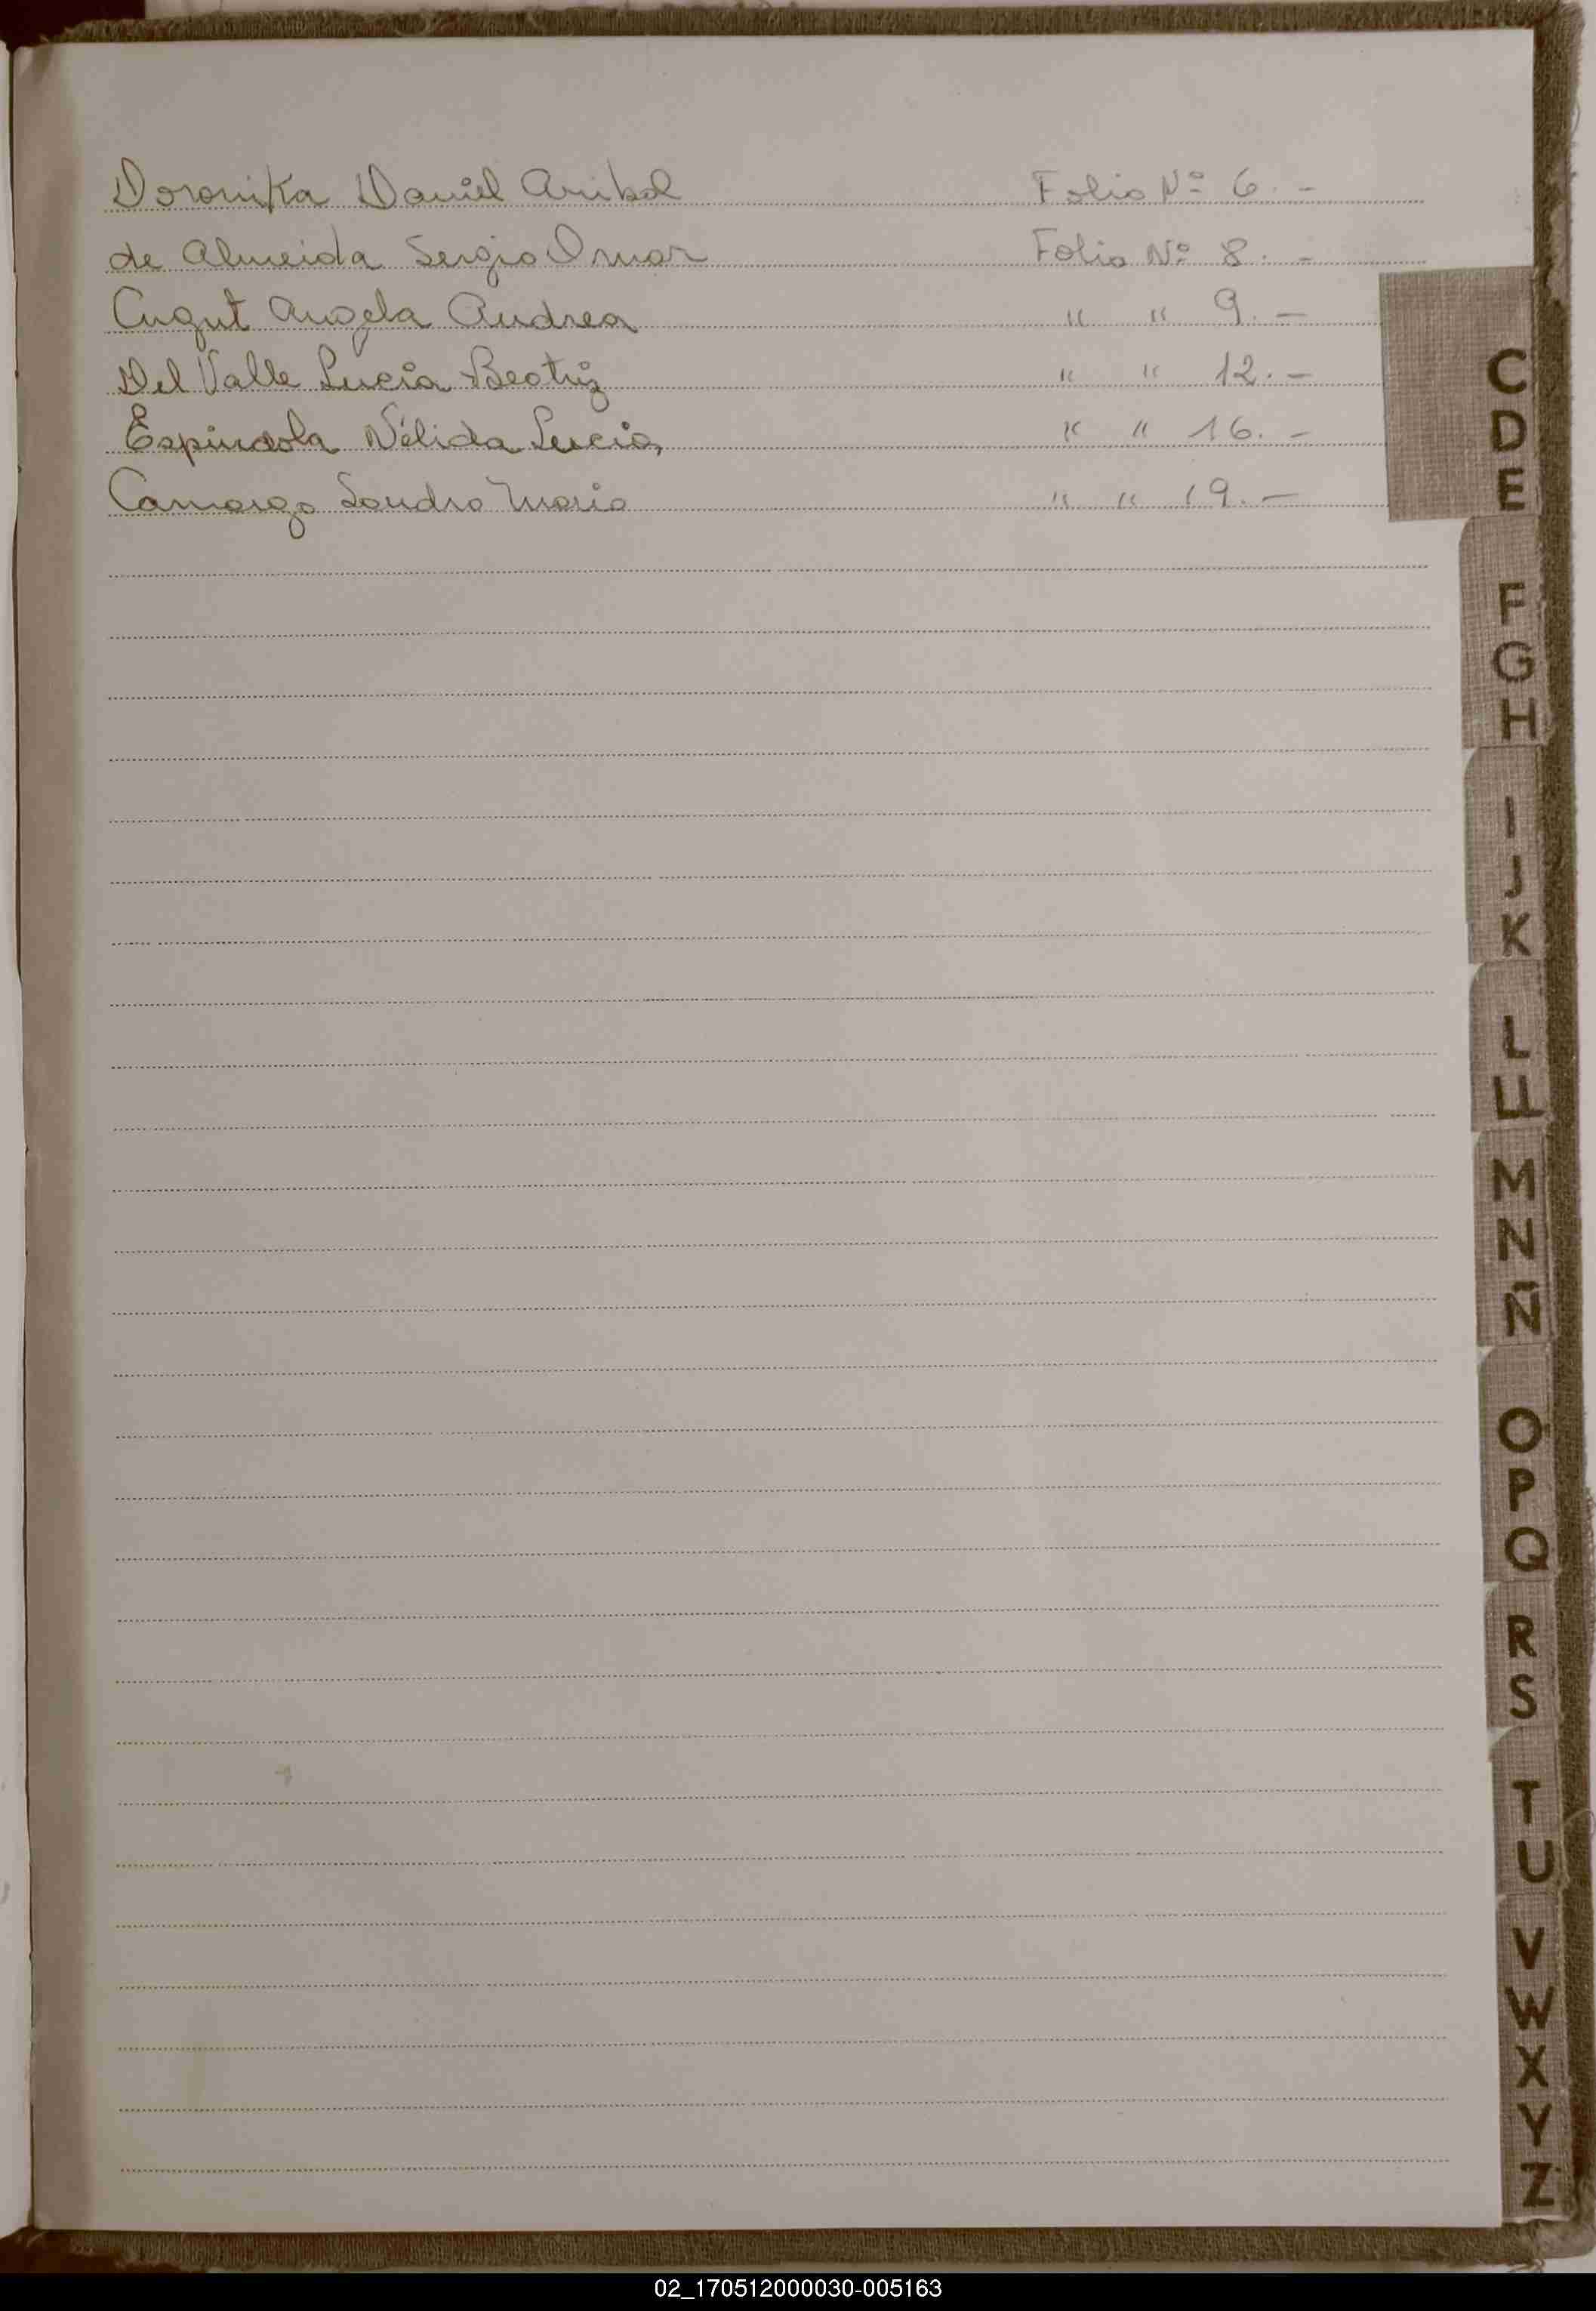 Doronika Daniel Anibal Folio Nº 6.-
de Almeida Sergio Omar Folio Nº 8.-
Cugut Angela Andrea " " 9.-
Del Valle Lucia Beatriz " " 12.-
Espindola Nélida Lucia, " " 16.-
Camargo Sandra Maria " " 19.-
C
D
E
F
G
H
I
J
K
L
LL
M
N
Ñ
O
P
Q
R
S
T
U
V
W
X
Y
Z
02_170512000030-005163